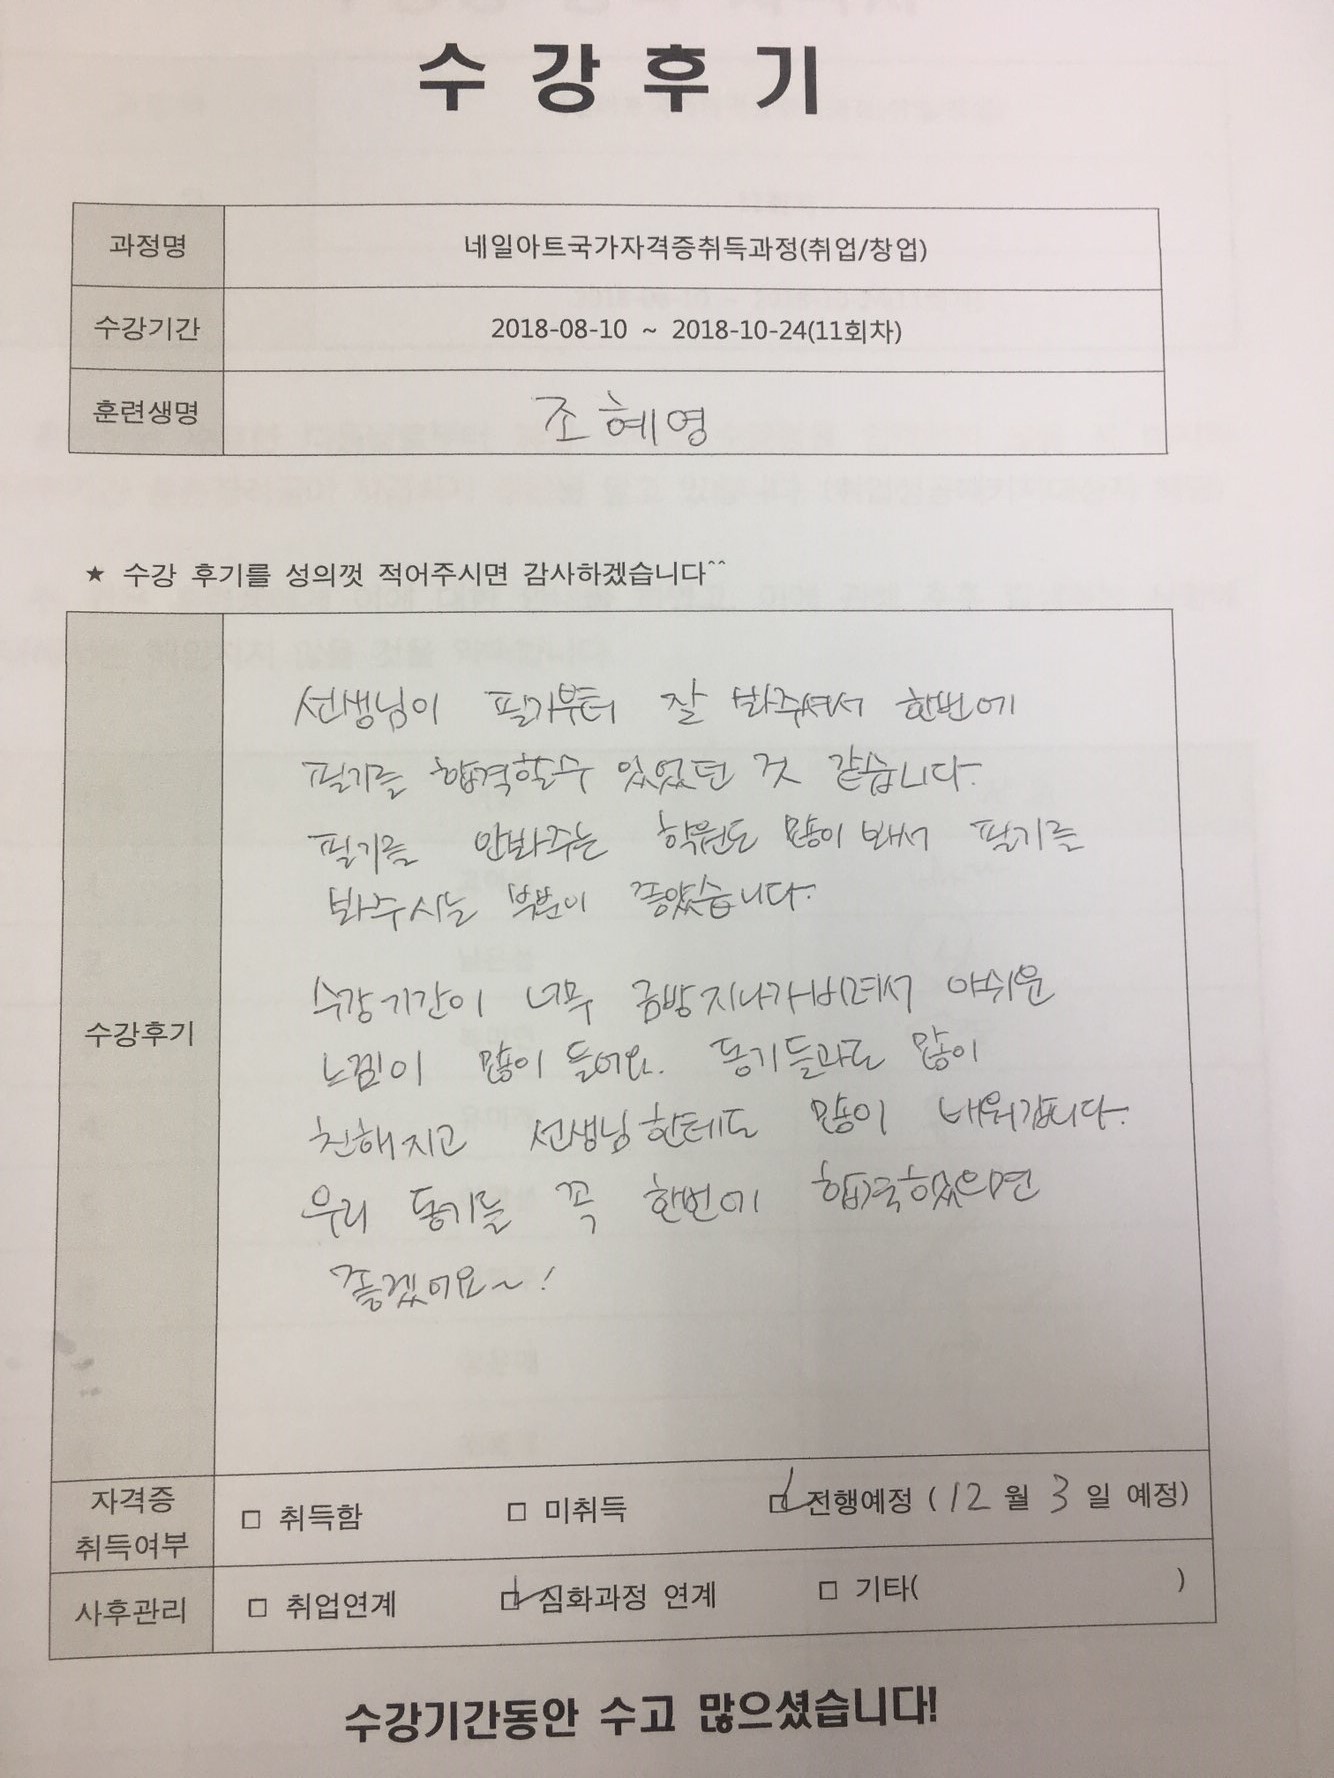 수강후기
과정명 네일아트국가자격증취득과정(취업/창업)
수강기간 2018-08-10 ~ 2018-10-24(11회차)
훈련생명 조혜영
★ 수강 후기를 성의껏 적어주시면 감사하겠습니다^^
수강후기
선생님이 필기부터 잘 봐주셔서 한번에
필기를 합격할수 있었던 것 같습니다.
필기를 안봐주는 학원도 많이 봐서 필기를
봐주시는 부분이 좋았습니다.
수강기간이 너무 금방지나가버려서 아쉬운
느낌이 많이 들어요. 동기들과도 많이
친해지고 선생님한테도 많이 배워갑니다.
우리 동기들 꼭 한번에 합격했으면
좋겠어요~!
자격증
취득여부
□ 취득함 □ 미취득 ☑ 진행예정 (12월 3일 예정)
사후관리 □ 취업연계 ☑ 심화과정 연계 □ 기타( )
수강기간동안 수고 많으셨습니다!